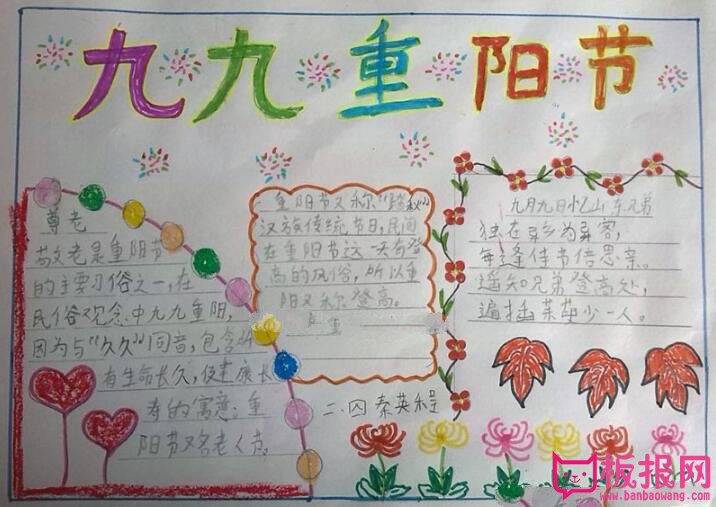 九九重阳节
尊老
敬老是重阳节
的主要习俗之一,在
民俗观念中九九重阳,
因为与"久久"同音,包含
有生命长久,健康长
寿的寓意:重
阳节又名老人节。
重阳节又称"踏秋"
汉族传统节日,民间
在重阳节这一天有登
高的风俗,所以重
阳又称登高。
二、四 秦英程
九月九日忆山东兄弟
独在异乡为异客,
每逢佳节倍思亲。
遥知兄弟登高处,
遍插茱萸少一人。
板报网
www.banbaowang.com